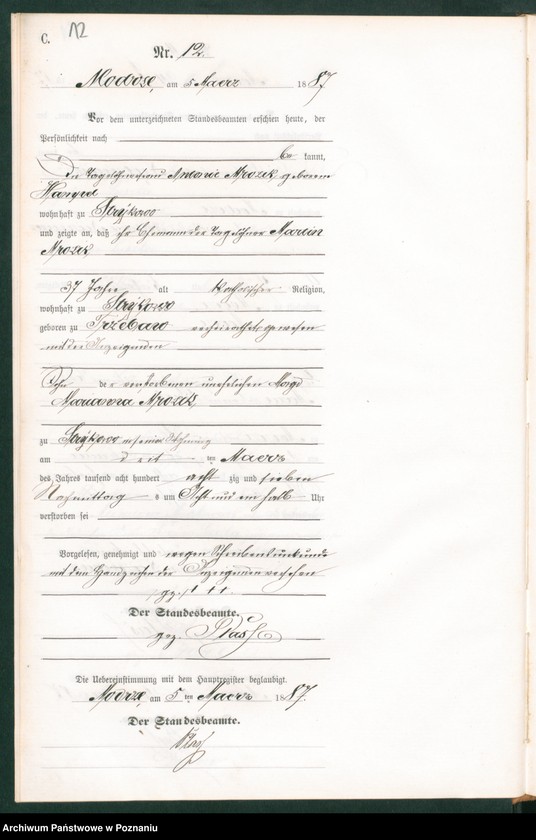 C. 12
Nr. 12.
Modrze, am 5 Maerz 1887
Vor dem unterzeichneten Standesbeamten erschien heute, der
Persönlichkeit nach
be kannt,
Die Tagelöhnerfrau Antonie Mrozek geborene
wohnhaft zu Strykowo
und zeigte an, daß ihr Ehemann der Tagelöhner Marcin
Mrozek
37 Jahre alt katholischer Religion,
wohnhaft zu Strykowo
geboren zu Trzebaw verheirathet gewesen
mit der Anzeigenden
Sohn der verstorbenen unehelichen Magd
Marianna Mrozek,
zu Strykowo in seiner Wohnung
am ten Maerz
des Jahres tausend acht hundert acht zig und sieben
Nachmittag s um Acht und ein halb Uhr
verstorben sei
Vorgelesen, genehmigt und wegen Schreibensunkunde
mit dem Handzeichen der Anzeigenden versehen
gez. † † †
Der Standesbeamte.
gez.
Die Uebereinstimmung mit dem Hauptregister beglaubigt.
Modrze, am 5 ten Maerz 1887.
Der Standesbeamte.
Archiwum Państwowe w Poznaniu